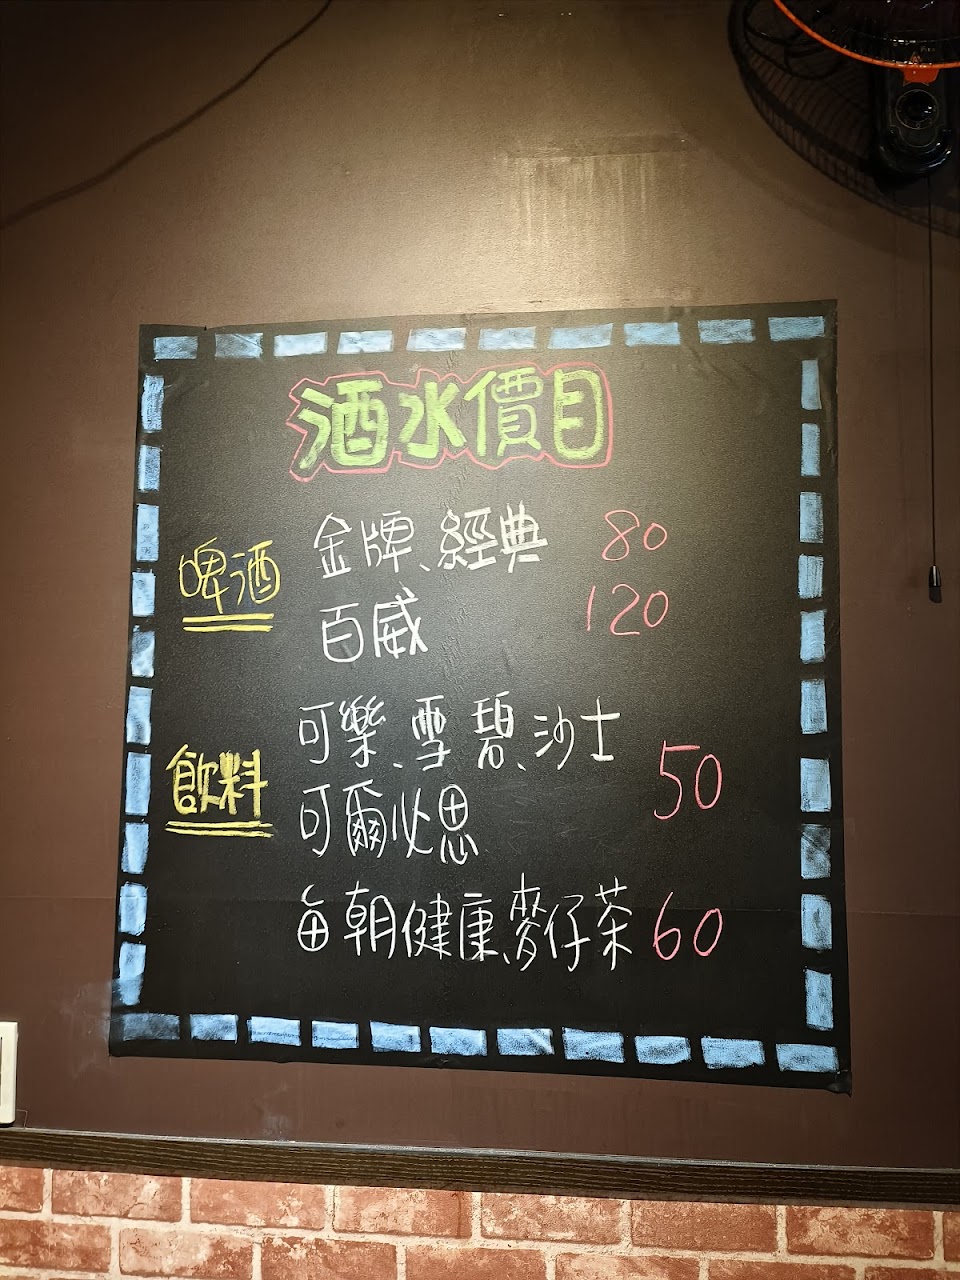 酒水價目
啤酒 金牌、經典 80
百威 120
飲料 可樂、雪碧、沙士
可爾必思 50
每朝健康、麥仔茶 60